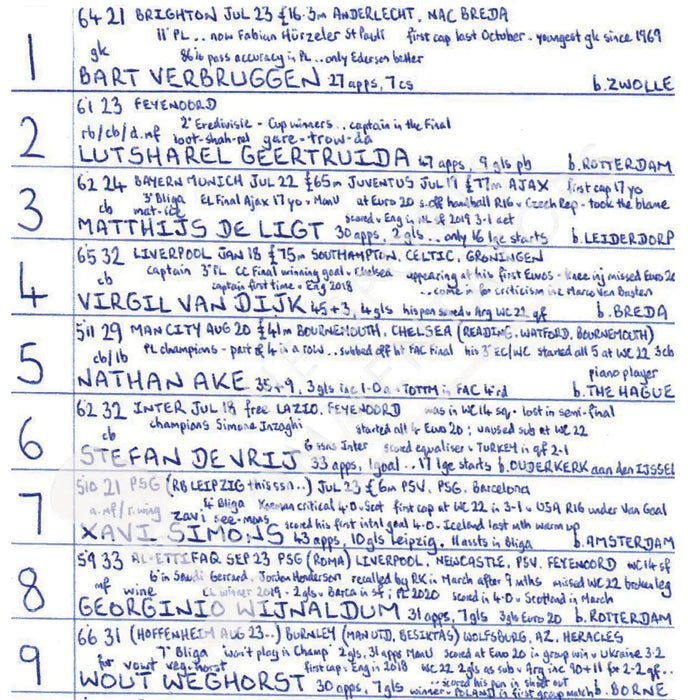 1
64 21 BRIGHTON JUL 23 £16.3m ANDERLECHT, NAC BREDA
11' PL .. now Fabian Hürzeler St Pauli first cap last October - youngest gk since 1969
gk 86% pass accuracy in PL .. only Ederson better
BART VERBRUGGEN 27 apps, 7 cs b. ZWOLLE
2
61 23 FEYENOORD
rb/cb/d.mf 2' Eredivisie - Cup winners .. captain in the Final
loot-shah-rel gare-trow-da
LUTSHAREL GEERTRUIDA 47 apps, 9 gls pb b. ROTTERDAM
3
62 24 BAYERN MUNICH JUL 22 £65m JUVENTUS JUL 19 £77m AJAX first cap 17 yo
cb 3' Bliga EL Final Ajax 17 yo - ManU at Euro 20 s.off handball R16 - Czech Rep - took the blame
mat-ice scored v Eng in NL sf 2019 3-1 aet
MATTHIJS DE LIGT 30 apps, 2 gls ... only 16 lge starts b. LEIDERDORP
4
65 32 LIVERPOOL JAN 18 £75m SOUTHAMPTON, CELTIC, GRONINGEN
cb captain 3' PL CC Final winning goal v Chelsea appearing at his first Euros - knee inj missed Euro 20
captain first time v Eng 2018 ... come in for criticism inc Marco Van Basten
VIRGIL VAN DIJK 45+3, 4 gls his pen scored v Arg WC 22 qf b. BREDA
5
511 29 MAN CITY AUG 20 £41m BOURNEMOUTH, CHELSEA (READING, WATFORD, BOURNEMOUTH)
cb/lb PL champions - part of 4 in a row .. subbed off ht FAC Final his 3' EC/WC started all 5 at WC 22 3cb
piano player
NATHAN AKE 35+9, 3 gls inc 1-0 a - TOTTM in FAC 4'rd b. THE HAGUE
6
62 32 INTER JUL 18 free LAZIO, FEYENOORD was in WC 14 sq - lost in semi-final
cb champions Simone Inzaghi started all 4 Euro 20 ; unused sub at WC 22
6 ssns Inter scored equaliser v TURKEY in qf 2-1
STEFAN DE VRIJ 33 apps, 1 goal .. 17 lge starts b. OUDERKERK aan den IJSSEL
7
510 21 PSG (RB LEIPZIG this ssn ..) JUL 23 £6m PSV, PSG, Barcelona
a.mf/r.wing 4' Bliga Koeman critical 4-0 v Scot first cap at WC 22 in 3-1 v USA R16 under Van Gaal
zavi see-mons scored his first intnl goal 4-0 v Iceland last mth warm up
XAVI SIMONS 43 apps, 10 gls Leipzig, 11 assts in Bliga b. AMSTERDAM
8
59 33 AL-ETTIFAQ SEP 23 PSG (ROMA) LIVERPOOL, NEWCASTLE, PSV, FEYENOORD WC 14 sf
mf 6' in Saudi Gerrard, Jordan Henderson recalled by RK in March after 9 mths missed WC 22 broken leg
wine CL winner 2019 - 2 gls v Barca in sf ; PL 2020 scored in 4-0 v Scotland in March
GEORGINIO WIJNALDUM 31 apps, 7 gls 3 gls Euro 20 b. ROTTERDAM
9
66 31 (HOFFENHEIM AUG 23 ..) BURNLEY (MAN UTD, BESIKTAS) WOLFSBURG, AZ, HERACLES
for 7' Bliga won't play in Champ' 2 gls, 31 apps ManU scored at Euro 20 in group win v Ukraine 3-2
vowt vegchorst first cap v Eng in 2018 WC 22 2 gls as sub v Arg inc 90+11 for 2-2 qf ..
.. scored his pen in shoot out
WOUT WEGHORST 30 apps, 7 gls winner v POLAND in first group match b. BORNE